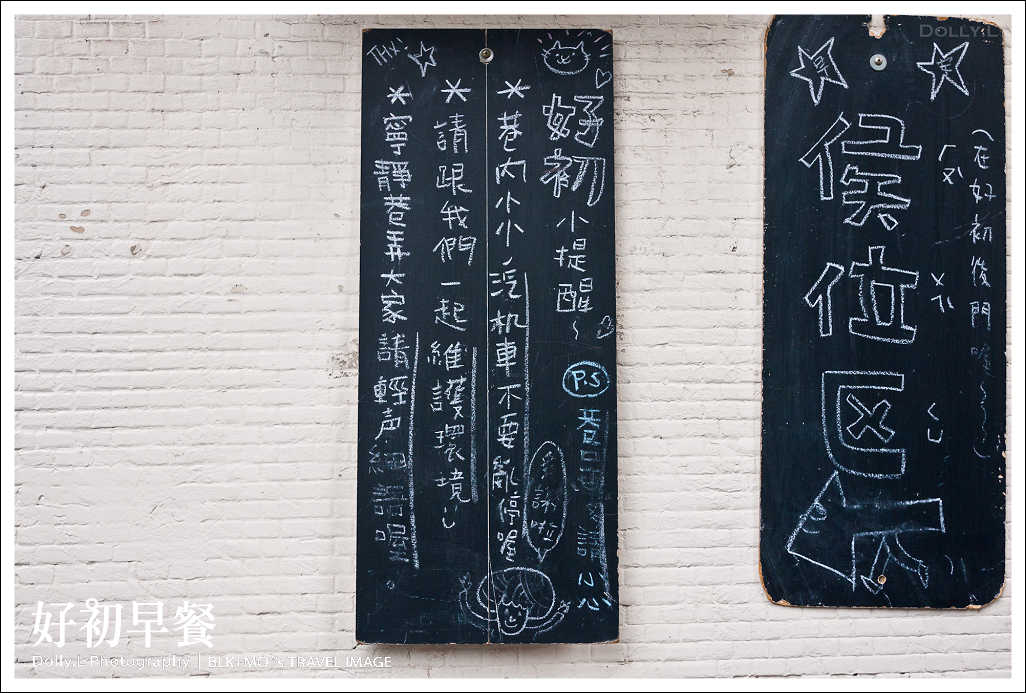 DOLLY.L
(在好初後門喔~~~)
侯位区
好初小提醒~
P.S 巷口車多請小心
*巷内小小,汽机車不要亂停喔
謝啦
*請跟我們一起維護環境
THX!
*寧靜巷弄大家請輕声細語喔。
好初早餐
Dolly.L Photography | BLK+MO 's TRAVEL IMAGE